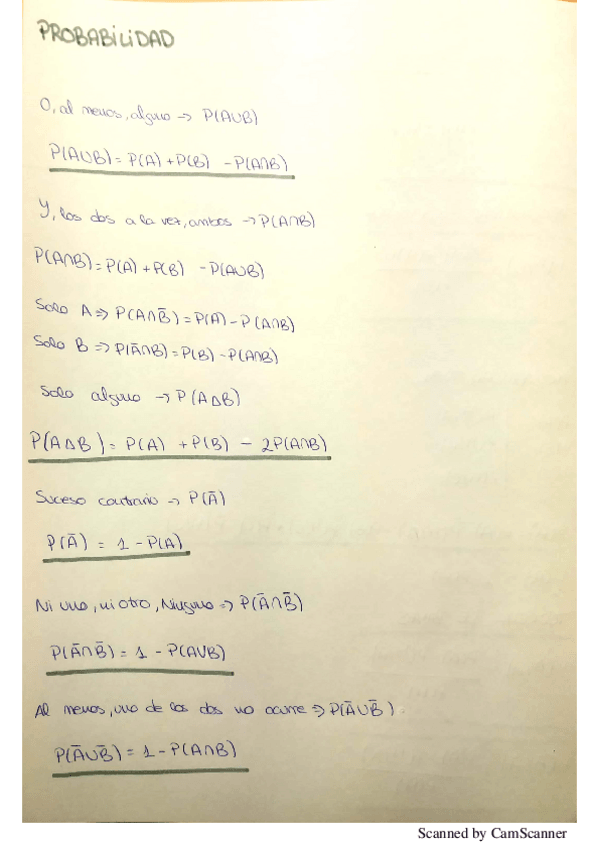 PROBABILIDAD
O, al menos, alguno → P(A∪B)
P(A∪B) = P(A) + P(B) - P(A∩B)
Y, los dos a la vez, ambos → P(A∩B)
P(A∩B) = P(A) + P(B) - P(A∪B)
Solo A ⇒ P(A∩B̄) = P(A) - P(A∩B)
Solo B ⇒ P(Ā∩B) = P(B) - P(A∩B)
Solo alguno → P(A△B)
P(A△B) = P(A) + P(B) - 2P(A∩B)
Suceso contrario → P(Ā)
P(Ā) = 1 - P(A)
Ni uno, ni otro, Ninguno ⇒ P(Ā∩B̄)
P(Ā∩B̄) = 1 - P(A∪B)
Al menos, uno de los dos no ocurre ⇒ P(Ā∪B̄)
P(Ā∪B̄) = 1 - P(A∩B)
Scanned by CamScanner